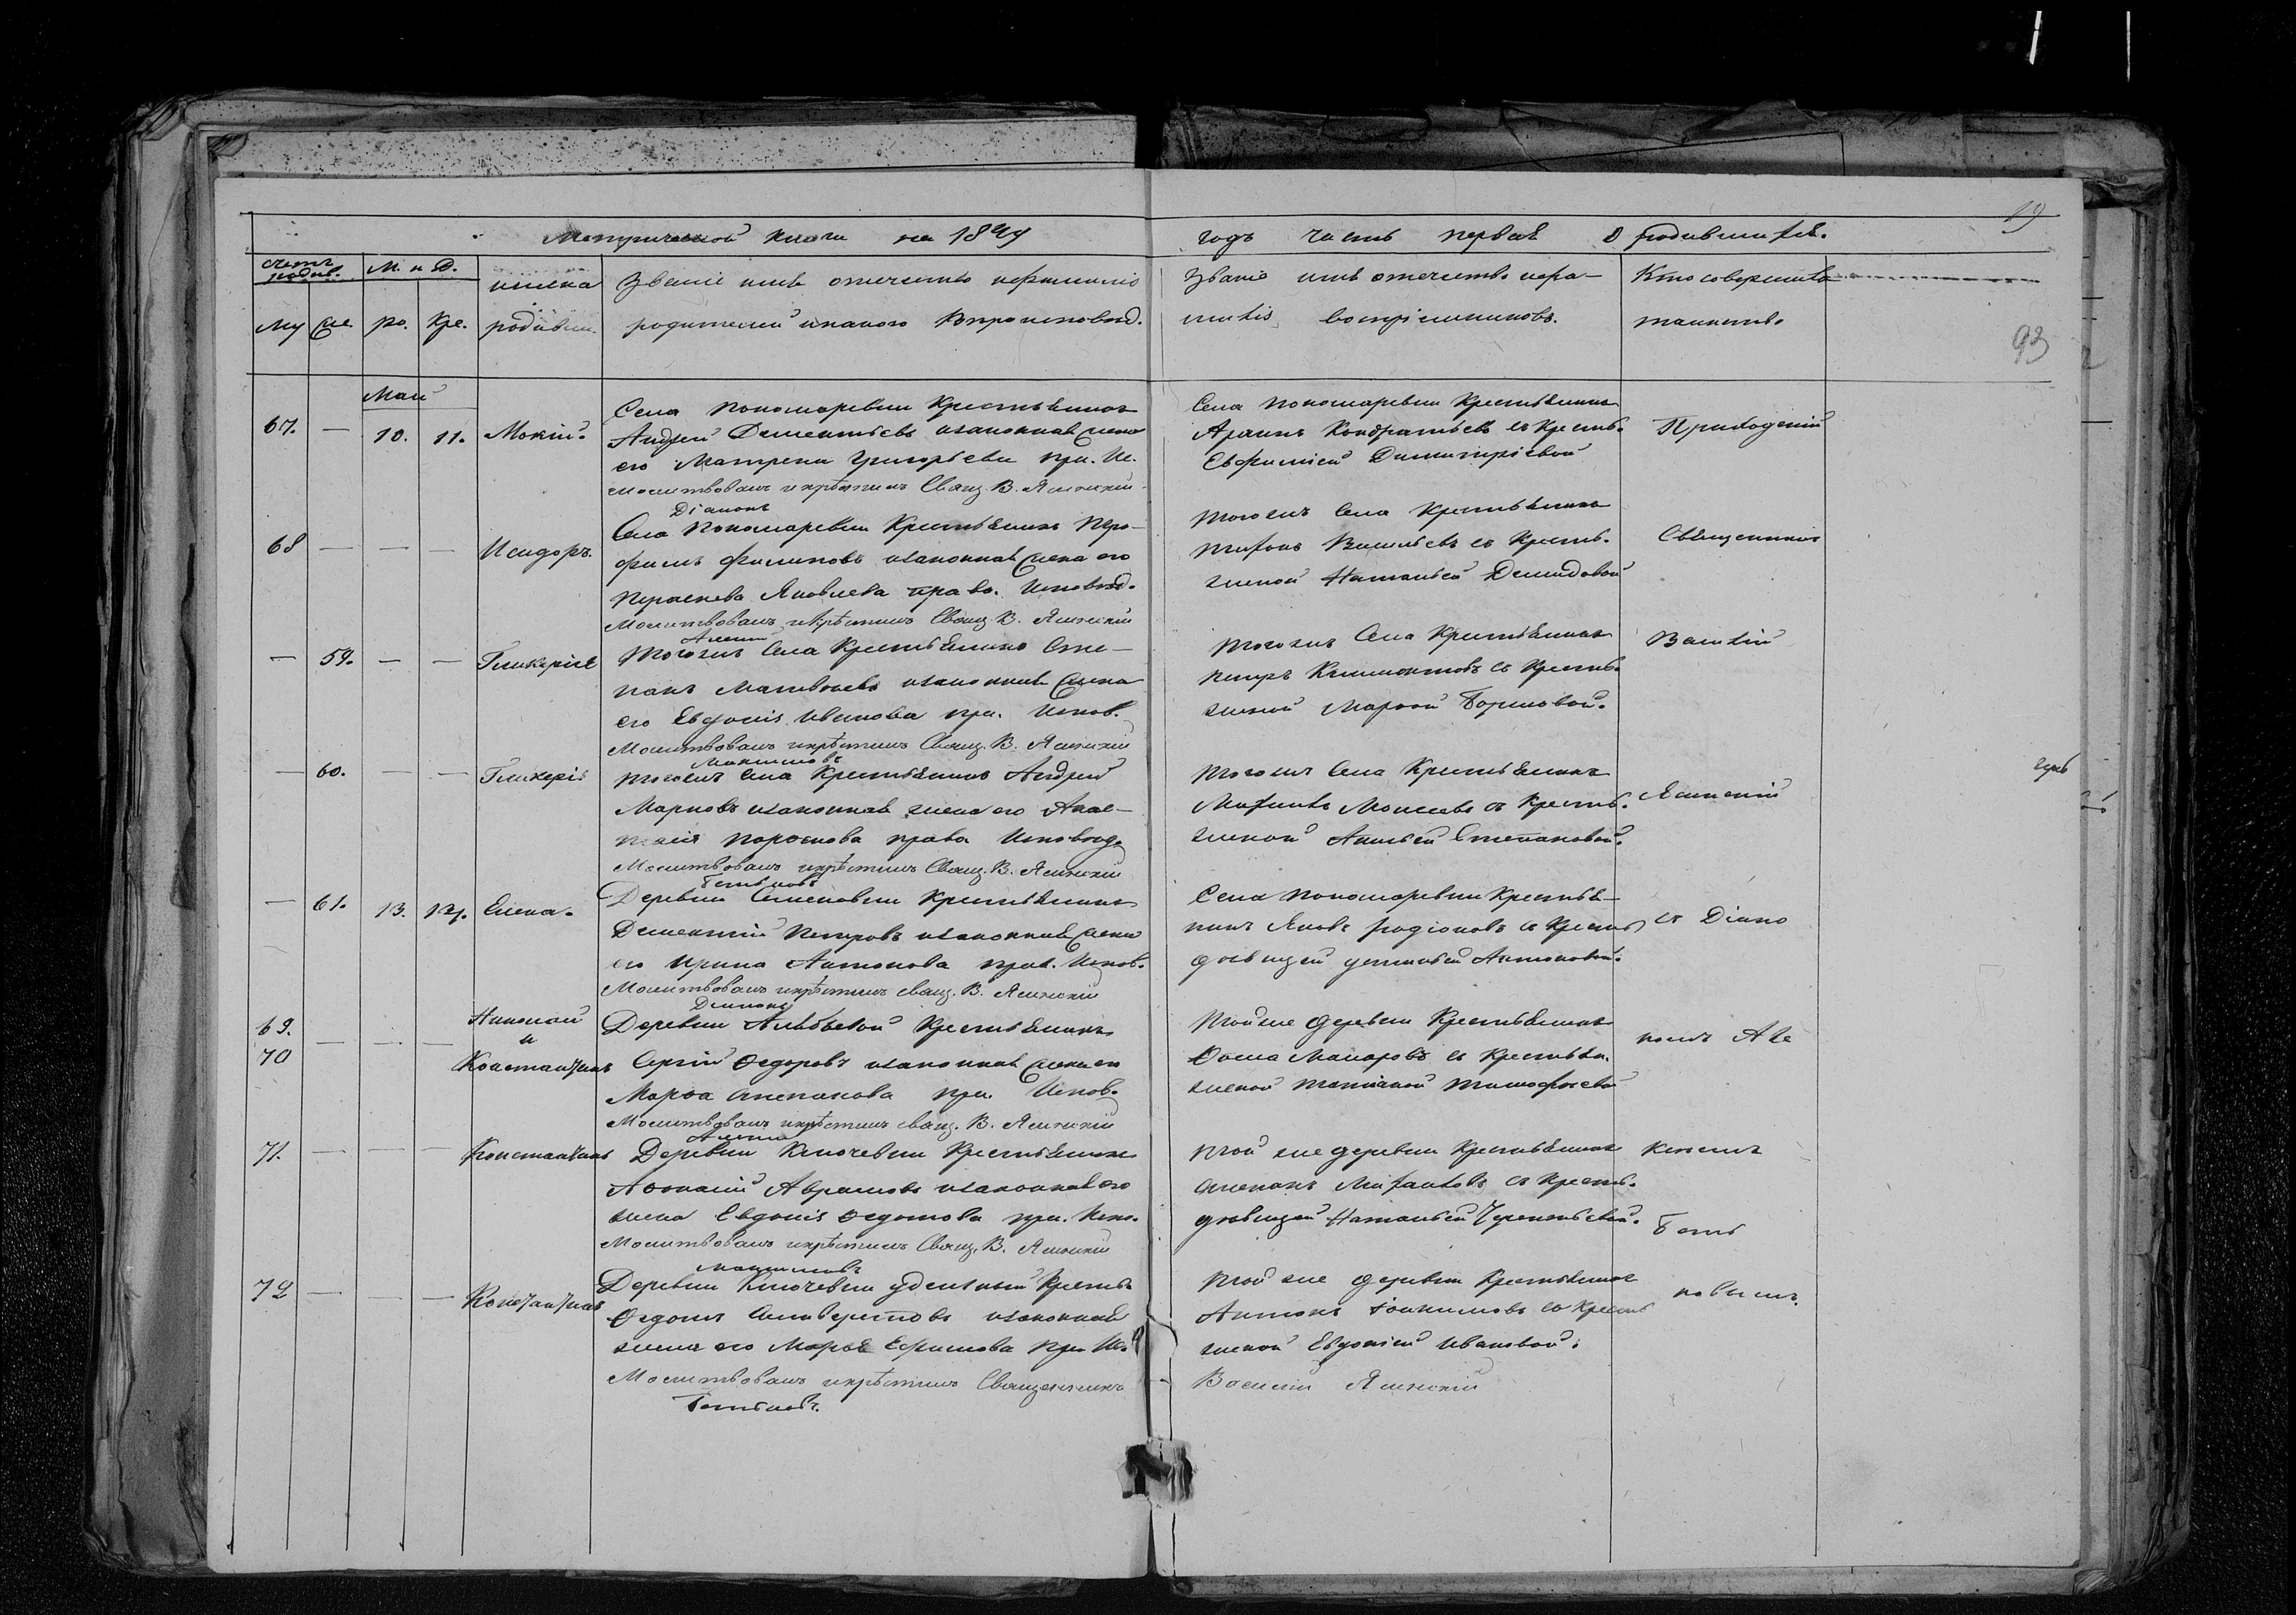 Метрической книги на 18
годъ часть первая о родившихся.
19
93
счетъ родив.
М. и Д.
имена родивш.
Званіе имя отечество и фамилія
родителей и какого вѣроисповѣд.
му же. ро. кре.
Званіе имя отечество и фа-
милія воспріемниковъ.
Кто совершалъ
таинство
Май
67. — 10. 11. Мокій.
Села Пономаревки крестьянинъ
Андрей Дементьевъ и законная жена
его Матрена Григорьева пра. Ис.
Молитвовалъ и крѣстилъ Свящ. В. Ясинскій
Діаконъ
Села Пономаревки крестьянинъ
Кондратьевъ съ крестья.
Евфиміей Димитріевой
Приходскій
68 — — — Исидоръ.
Села Пономаревки крестьянинъ Пер-
филъ Филиповъ и законная жена его
Параскева Яковлева право. Исповѣд.
Молитвовалъ и крѣстилъ Свящ. В. Ясинскій
Того же села крестьянинъ
Тихонъ Васильевъ съ крестья.
женой Натальей Демидовой
Священникъ
— 59. — — Гликерія
Того же села крестьянинъ Сте-
панъ Матвѣевъ и законная жена
его Евдокія Иванова пра. Испов.
Молитвовалъ и крѣстилъ Свящ. В. Ясинскій
Максимовъ
Того же села крестьянинъ
Петръ съ крестья.
женой Марѳой
Василій
— 60. — — Гликерія
Того же села крестьянинъ Андрей
Марковъ и законная жена его Анас-
тасія права Исповѣд.
Молитвовалъ и крѣстилъ Свящ. В. Ясинскій
Того же села крестьянинъ
Моисеевъ съ крестья.
женой Степановой.
Ясинскій
— 61. 13. 14. Елена.
Деревни Семеновки крестьянинъ
Дементій Петровъ и законная жена
его Ирина Антонова прав. Испов.
Молитвовалъ и крѣстилъ свящ. В. Ясинскій
Села Пономаревки крестья-
нинъ Яковъ Родіоновъ съ крестья.
дѣвицей Устиньей Антоновой.
съ Діако
69.
70 — — — Николай
и
Константинъ
Деревни крестьянинъ
Сергій Ѳедоровъ и законная жена его
Марѳа Степанова пра. Испов.
Молитвовалъ и крѣстилъ свящ. В. Ясинскій
Той же деревни крестьянинъ
Ѳома Макаровъ съ крестья.
женой Татіаной Тимофѣевой
номъ Але
71. — — — Константинъ
Деревни Ключевки крестьянинъ
Аѳанасій Аврамовъ и законная его
жена Евдокія Ѳедотова пра. Испо.
Молитвовалъ и крѣстилъ Свящ. В. Ясинскій
Той же деревни крестьянинъ
Степанъ съ крестья.
дѣвицей Натальей
72 — — — Константинъ
Деревни Ключевки удельный крестья.
Ѳедотъ Селиверстовъ и законная
жена его Марья Ефимова пра. Ис.
Молитвовалъ и крѣстилъ Священникъ
Той же деревни крестьянинъ
Антонъ съ крестья
женой Евдокіей Ивановой.
Василій Ясинскій